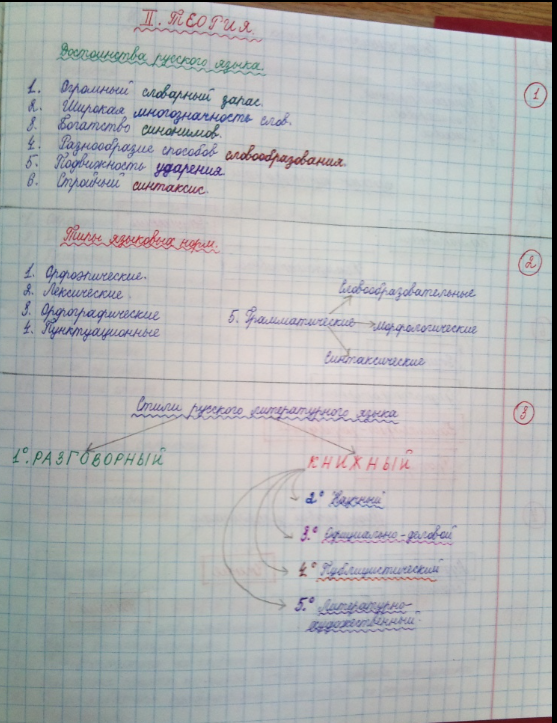 II. ТЕОРИЯ.
Достоинства русского языка
1
1. Огромный словарный запас.
2. Широкая многозначность слов.
3. Богатство синонимов.
4. Разнообразие способов словообразования.
5. Подвижность ударения
6. Стройный синтаксис.
Типы языковых норм.
2
1. Орфоэпические.
2. Лексические.
3. Орфографические
4. Пунктуационные
5. Грамматические
Словообразовательные
Морфологические
Синтаксические
Стили русского литературного языка
3
1° РАЗГОВОРНЫЙ
КНИЖНЫЙ
2° Научный
3.° Официально-деловой
4.° Публицистический
5.° Литературно-
художественный.